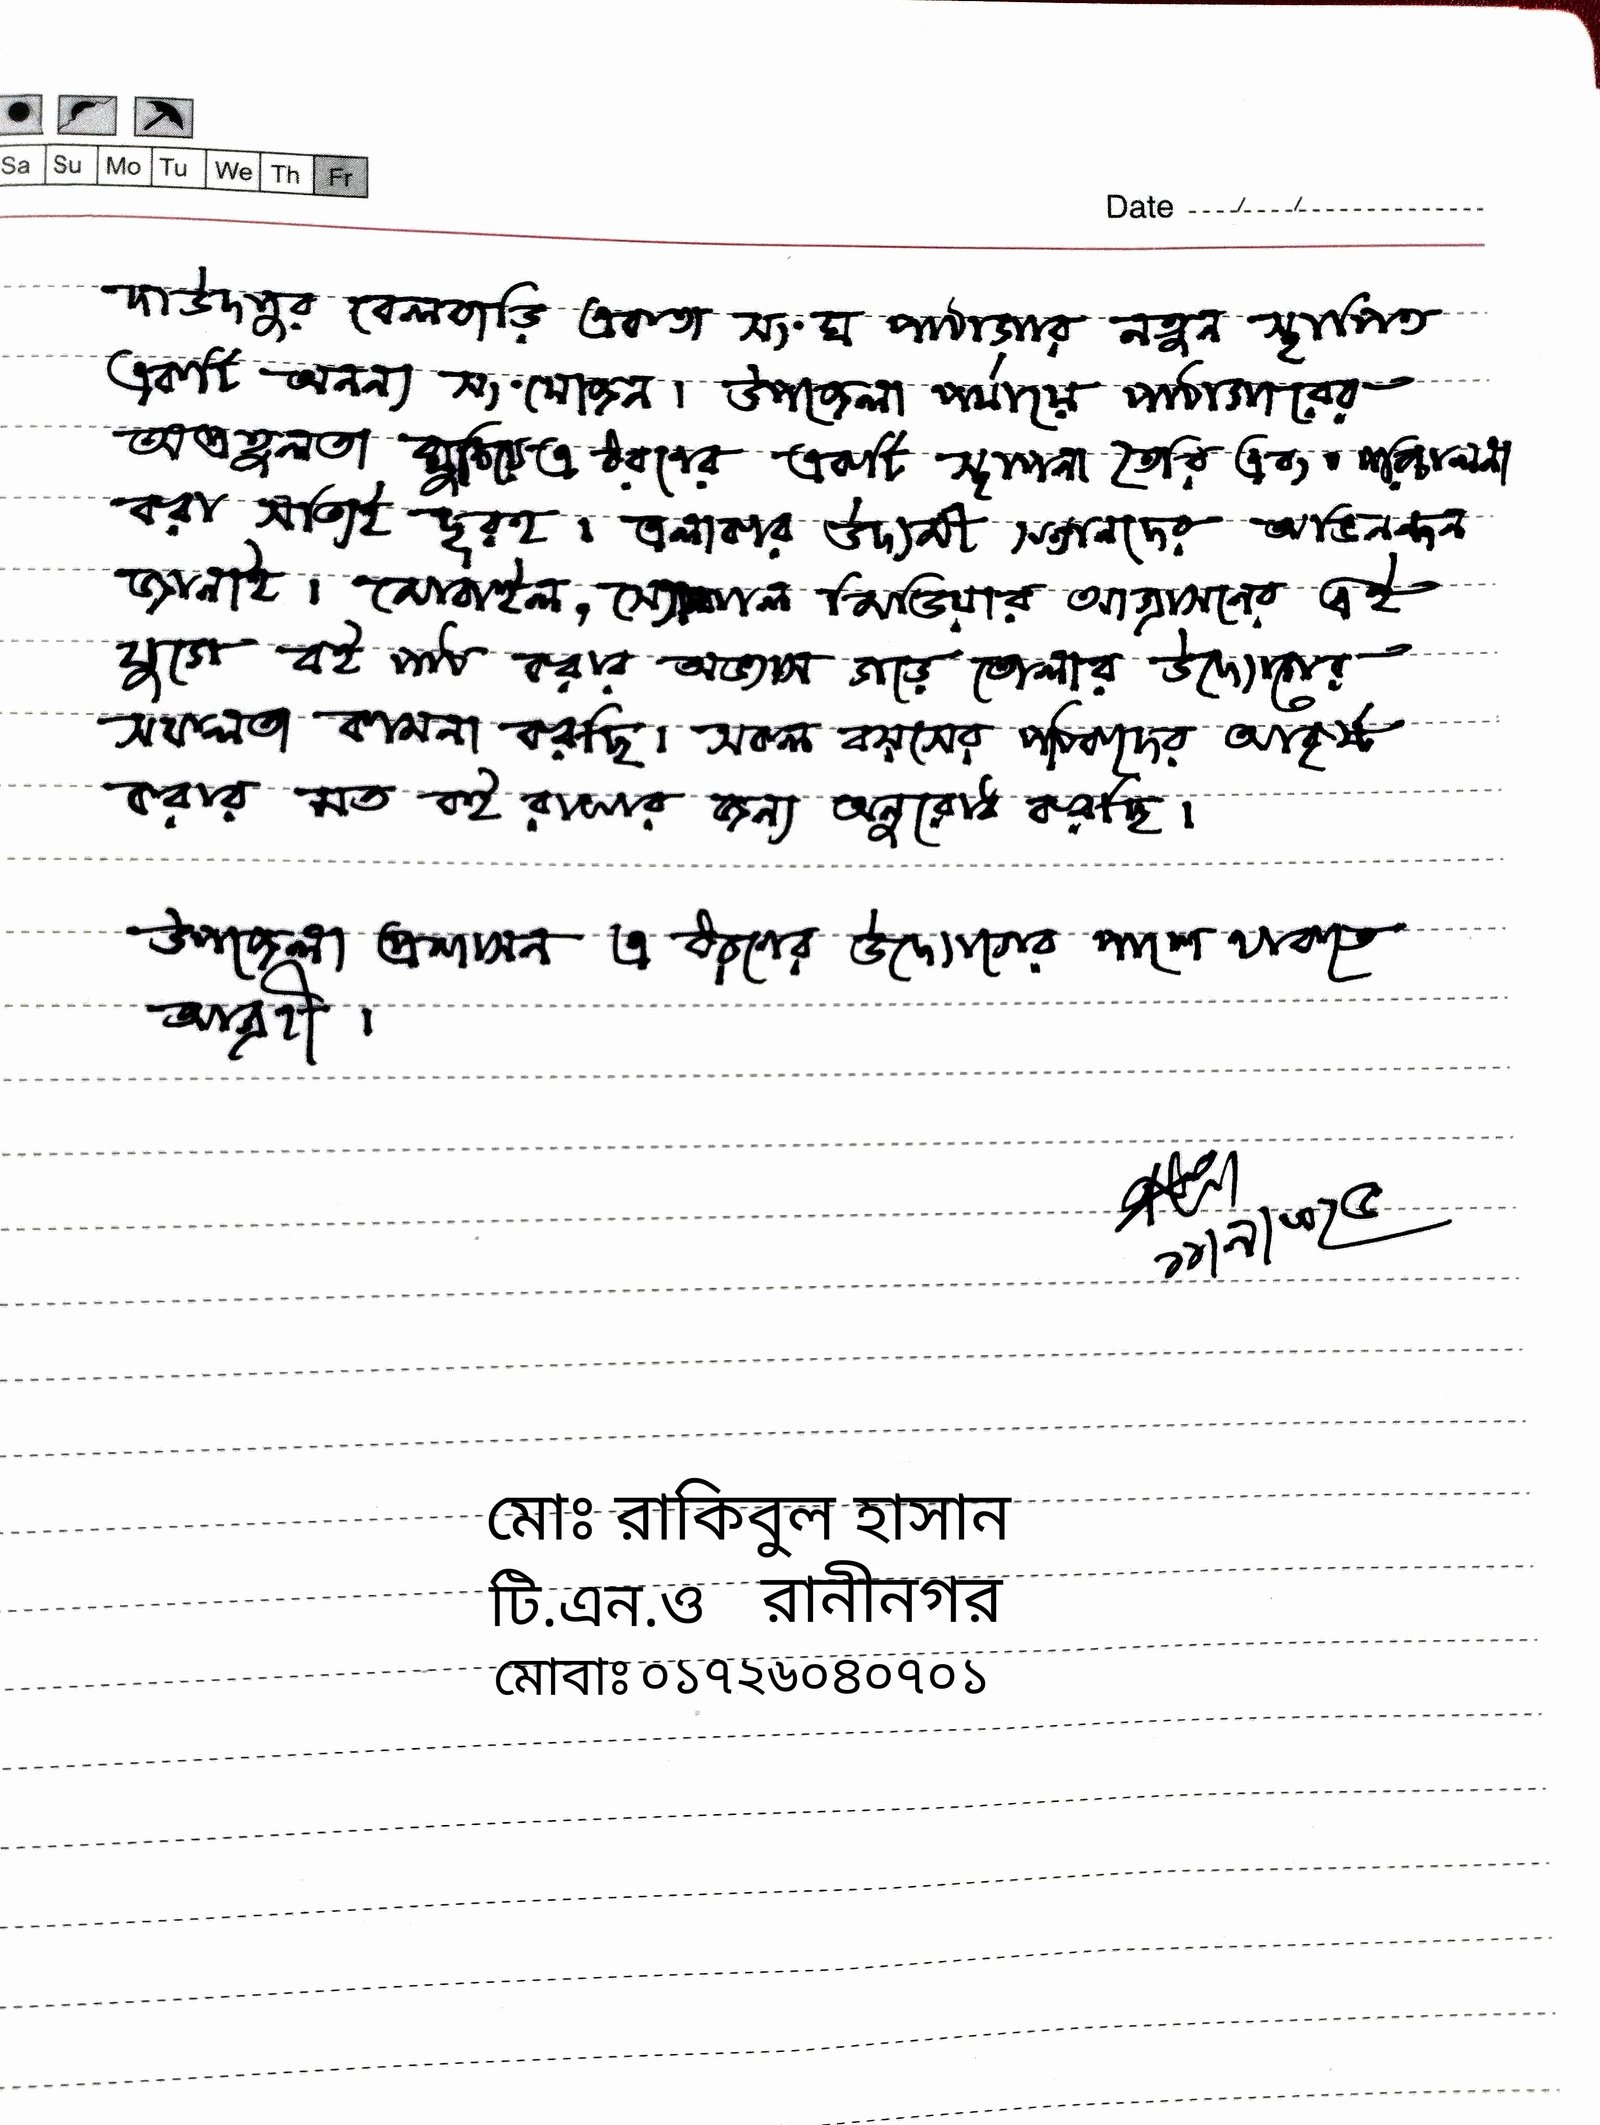 Sa Su Mo Tu We Th Fr
Date
দাউদপুর বেলবাড়ি একতা সংঘ পাঠাগার নতুন স্থাপিত
একটি অনন্য সংযোজন। উপজেলা পর্যায়ে পাঠাগারের
অপ্রতুলতা ঘুচিয়ে এ ধরণের একটি স্থাপনা তৈরি এবং পরিচালনা
করা সত্যিই দূরহ। এলাকার উদ্যমী সন্তানদের অভিনন্দন
জানাই। মোবাইল, সোশাল মিডিয়ার আগ্রাসনের এই
যুগে বই পাঠ করার অভ্যাস গড়ে তোলার উদ্যোগের
সফলতা কামনা করছি। সকল বয়সের পাঠকদের আকৃষ্ট
করার মত বই রাখার জন্য অনুরোধ করছি।
উপজেলা প্রশাসন এ ধরণের উদ্যোগের পাশে থাকতে
আগ্রহী।
মোঃ রাকিবুল হাসান
টি.এন.ও রানীনগর
মোবাঃ ০১৭২৬০৪০৭০১